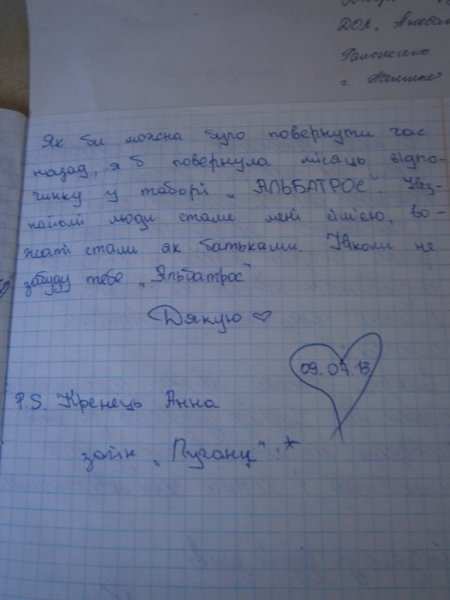 ДОЛ, Альба
Як би можна було повернути час
назад, я б повернула місяць відпо-
чинку у таборі „АЛЬБАТРОС". Нез-
найомі люди стали мені сім'єю, во-
жаті стали як батьками. Ніколи не
забуду тебе „Альбатрос"
Дякую ♡
09.07.13
P.S. Кренець Анна
загін „Пугачи" *